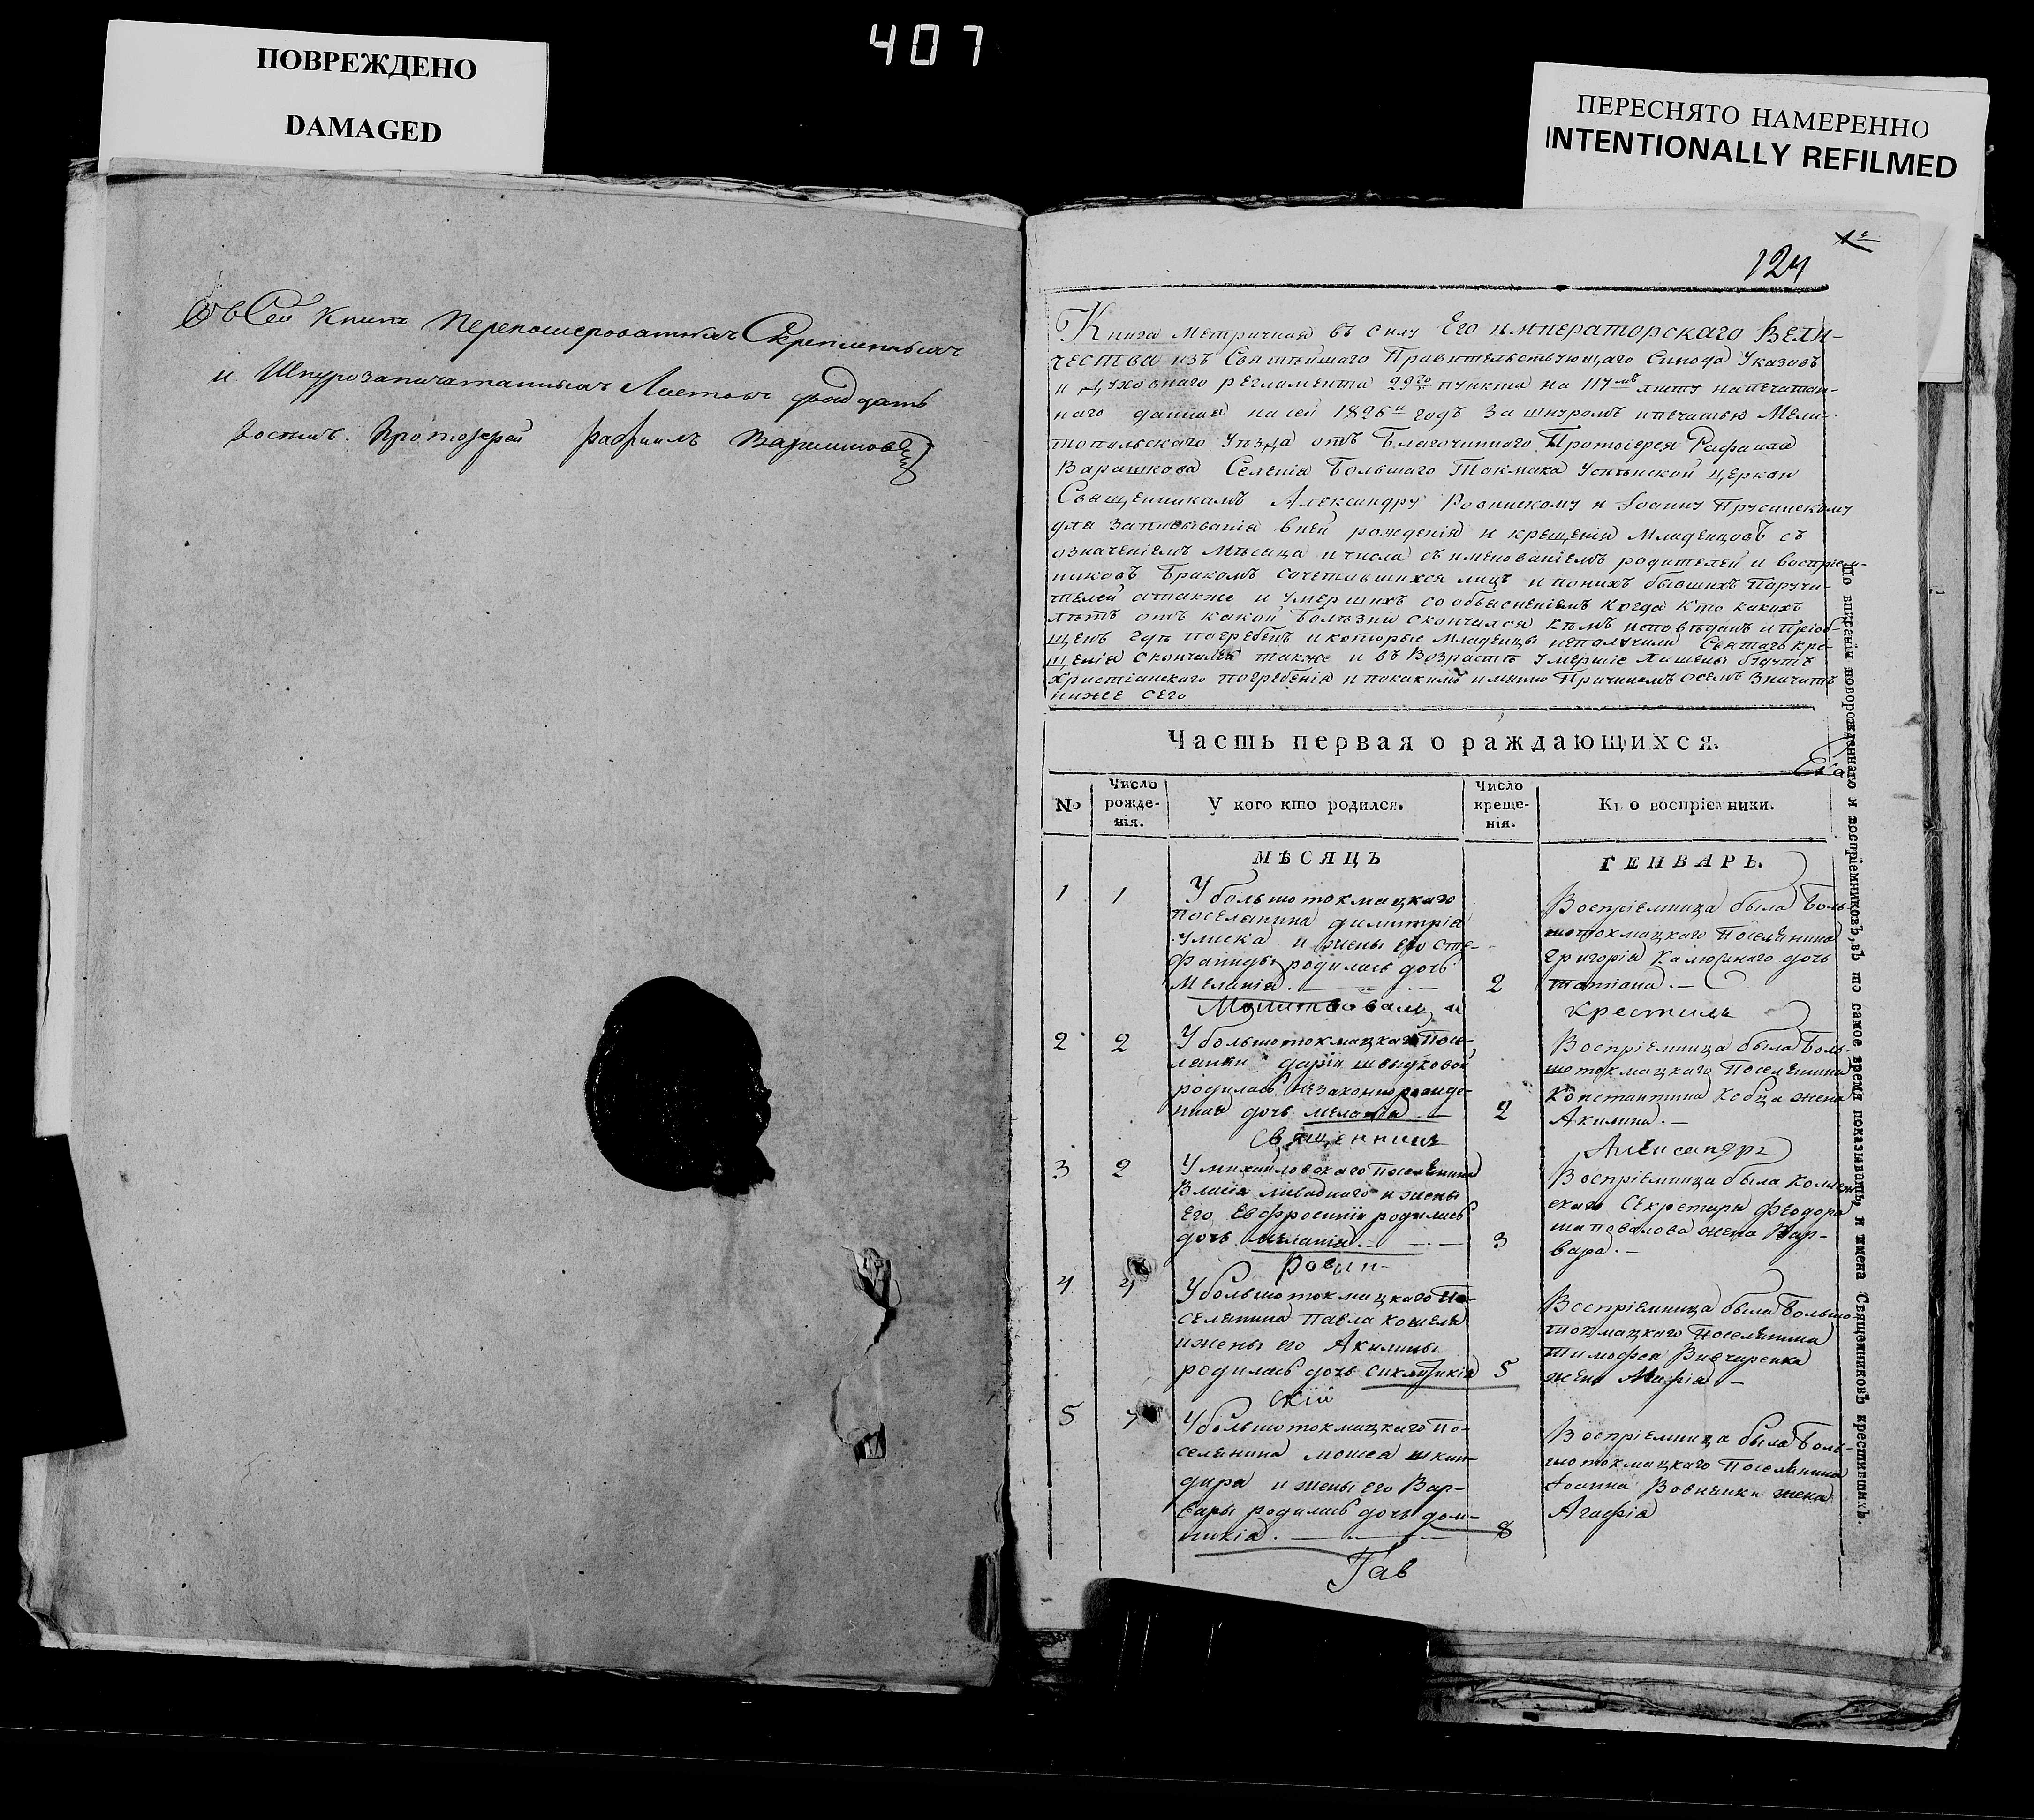 407
ПОВРЕЖДЕНО
DAMAGED
ПЕРЕСНЯТО НАМЕРЕННО
INTENTIONALLY REFILMED
въ Сей книге перенумерованныхъ Скрепленныхъ
и Шнурозапечатанныхъ Листовъ двадцать
восемь. Протоіерей Рафаилъ
124
Книга Метричная въ силу Его императорскаго Вели-
чества изъ Святѣйшаго Правительствующаго Синода Указовъ
и Духовнаго регламента 29го пункта на листу напечатан-
наго данная на сей 1826й годъ за шнуромъ и печатью Мели-
топольскаго Уѣзда отъ Благочиннаго Протоіерея Рафаила
Варашкова Селенія Большаго Токмака Успѣнской Церкви
Священникамъ Александру Ровинскому и Іоанну Прусинскому
для записыванія в ней рожденія и крещенія Младенцовъ съ
означеніемъ Мѣсяца и числа съ именованіемъ родителей и воспріем-
никовъ Бракомъ сочетовшихся лицъ и по нихъ бывшихъ Поручи-
телей а также и умершихъ со объясненіемъ когда кто какихъ
лѣтъ отъ какой Болѣзни скончался кѣмъ исповѣданъ и пріоб-
щенъ гдѣ погребенъ и которые младенцы неполучили Святаго кре-
щенія скончались также и въ Возрастѣ Умершіе лишены будутъ
Христіанскаго погребенія и по какимъ имянно Причинамъ о семъ Значитъ
ниже сего
Часть первая о раждающихся.
№
Число рожде-нія.
У кого кто родился.
Число креще-нія.
Кто воспріемники.
МѢСЯЦЪ
ГЕНВАРЬ.
1 1 У большотокмацкаго
поселянина димитрія
и жены его Сте-
фаниды родилась дочь
Меланія. 2
Воспріемница была Боль-
шотокмацкаго Поселянина
Григорія дочь
татіана.
Молитвовалъ и
крестилъ
2 2 У большотокмацкой Посе-
лянки даріи
родилась незаконнорожде-
нная дочь меланія 2
Воспріемница была Боль-
шотокмацкаго Поселянина
Константина Кобца жена
Акилина.
Священникъ
Александръ
3 2 У михайловскаго поселянина
Власія и жены
его Евфросиніи родилась
дочь меланія. 3
Воспріемница была Коллеж-
скаго Секретаря Феодора
шаповалова жена Вар-
вара.
Ровин-
4 4 У большотокмацкаго По-
селянина Павла Кошеля
и жены его Акилины
родилась дочь синклитикія 5
Воспріемница была Большо-
токмацкаго Поселянина
тимофея
жена Марія
скій
5 У большотокмацкаго По-
селянина моисея шкин-
дира и жены его Вар-
вары родилась дочь дом-
никія. 8
Воспріемница была Боль-
шотокмацкаго Поселянина
Іоанна жена
Агафія
Гав
По вписаніи новорожденнаго и воспріемниковъ, въ то самое время показывать и имена Священниковъ крестившихъ.